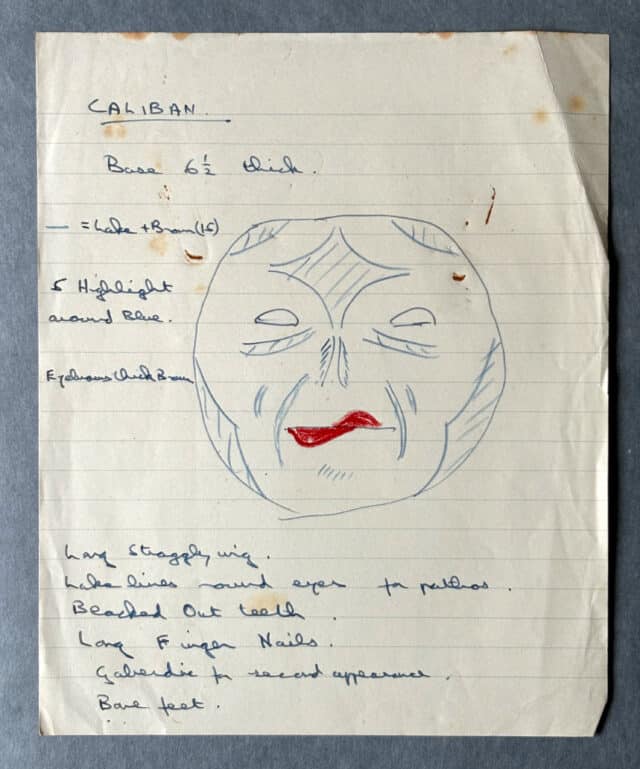 CALIBAN.
Base 6½ thick.
— = Lake + Brown (16)
5 Highlight
around Blue.
Eyebrows thick Brown
Long Straggly wig.
Lake lines round eyes for pathos.
Blacked Out teeth.
Long Finger Nails.
Gaberdine for second appearance.
Bare feet.